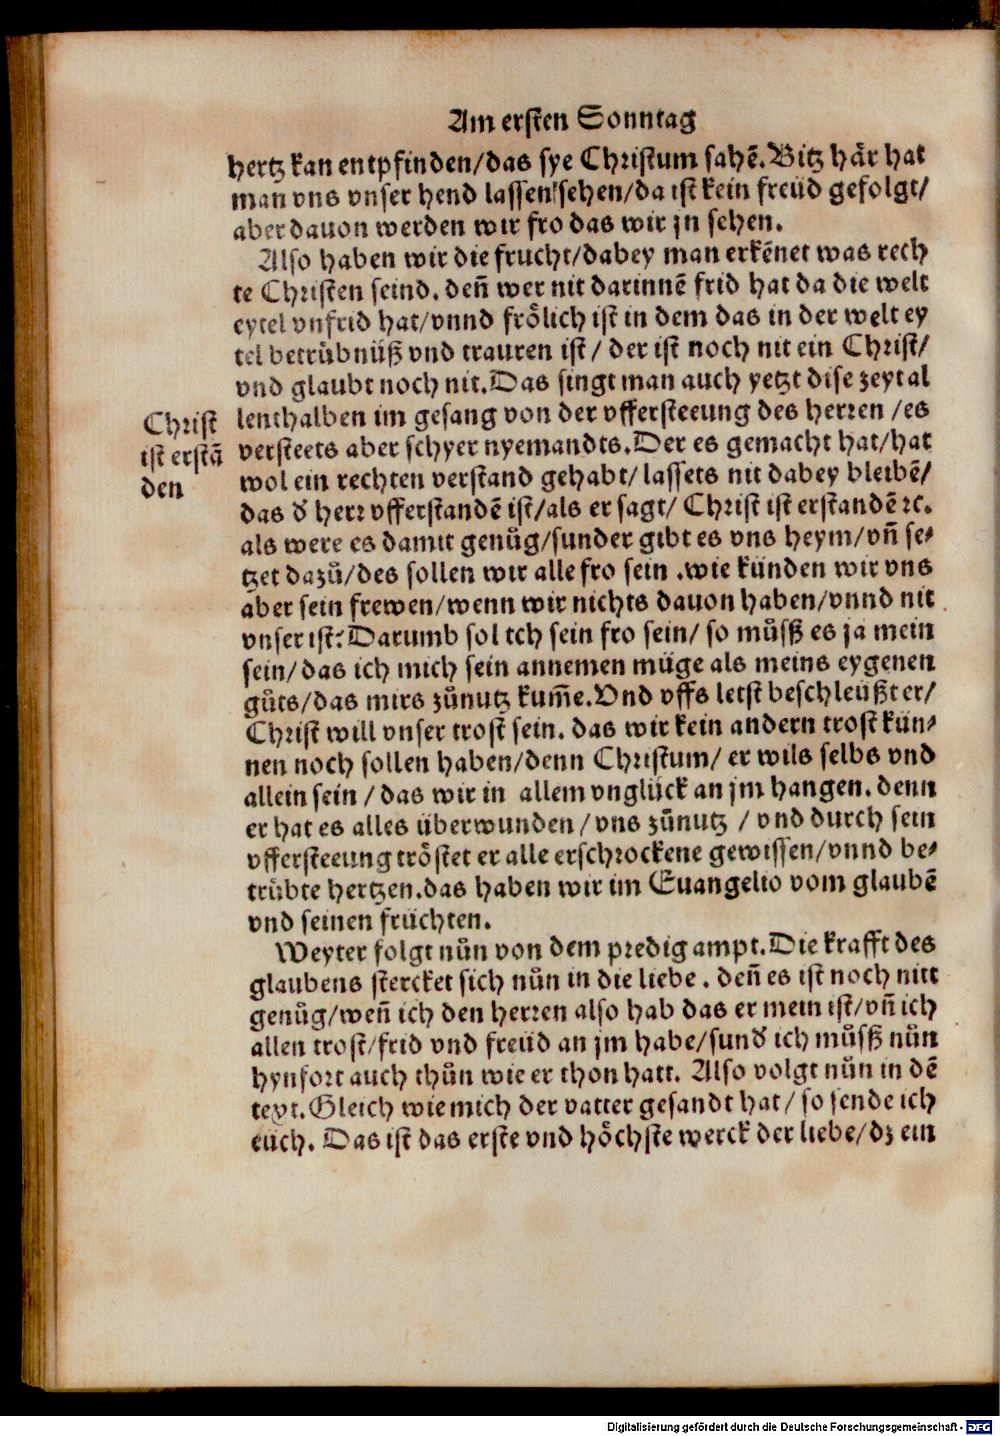 Am ersten Sonntag
hertz kan entpfinden/das sye Christum sahē. Bitz här hat
man vns vnser hend lassen sehen/da ist kein freüd gefolgt/
aber dauon werden wir fro das wir jn sehen.
Also haben wir die frucht/dabey man erkēnet was rech
te Christen seind. deñ wer nit darinnē frid hat da die welt
eytel vnfrid hat/vnnd frölich ist in dem das in der welt ey
tel betrůbnüß vnd trauren ist/ der ist noch nit ein Christ/
vnd glaubt noch nit. Das singt man auch yetzt dise zeyt al
lenthalben im gesang von der vffersteeung des herren /es
versteets aber schyer nyemandts. Der es gemacht hat/hat
wol ein rechten verstand gehabt/ lassets nit dabey bleibē/
das d̕ herr vfferstandē ist/als er sagt/ Christ ist erstandē ꝛc.
als were es damit genůg/sunder gibt es vns heym/vñ se⸗
tzet dazů/des sollen wir alle fro sein .wie künden wir vns
aber sein frewen/wenn wir nichts dauon haben/vnnd nit
vnser ist: Darumb sol ich sein fro sein/ so můsß es ja mein
sein/das ich mich sein annemen müge als meins eygenen
gůts/das mirs zůnutz kum̃e. Vnd vffs letst beschleüßt er/
Christ will vnser trost sein. das wir kein andern trost kün⸗
nen noch sollen haben/denn Christum/ er wils selbs vnd
allein sein / das wir in allem vnglück an jm hangen. denn
er hat es alles überwunden/vns zůnutz / vnd durch sein
vffersteeung tröstet er alle erschrockene gewissen/vnnd be⸗
trůbte hertzen. das haben wir im Euangelio vom glaubē
vnd seinen früchten.
Weyter folgt nůn von dem predig ampt. Die krafft des
glaubens stercket sich nůn in die liebe . deñ es ist noch nitt
genůg/weñ ich den herren also hab das er mein ist/vñ ich
allen trost/frid vnd freüd an jm habe/sund̕ ich můsß nůn
hynfort auch thůn wie er thon hatt. Also volgt nůn in dē
text. Gleich wie mich der vatter gesandt hat/ so sende ich
euch. Das ist das erste vnd höchste werck der liebe/dz ein
Christ
ist erstā
den
Digitalisierung gefördert durch die Deutsche Forschungsgemeinschaft - DFG